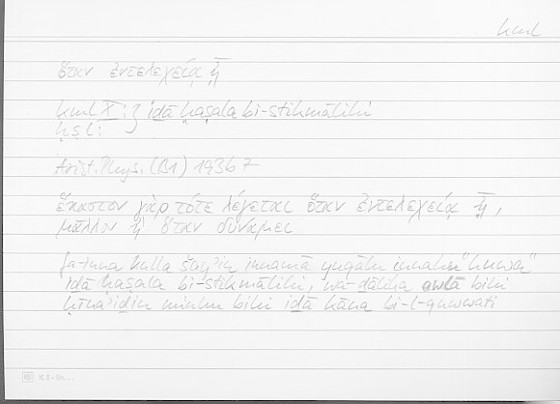 kml
ὅταν ἐντελεχείᾳ ᾖ
kml X : } iḏā ḥaṣala bi-stikmālihi
ḥṣl :
Arist. Phys. (B1) 193b7
ἕκαστον γὰρ τότε λέγεται ὅταν ἐντελεχείᾳ ᾖ,
μᾶλλον ἢ ὅταν δυνάμει
fa-inna kulla šayʾin innamā yuqālu innahu "huwa"
iḏā ḥaṣala bi-stikmālihi, wa-ḏālika awlā bihi
ḥīnaʾiḏin minhu bihi iḏā kāna bi-l-quwwati